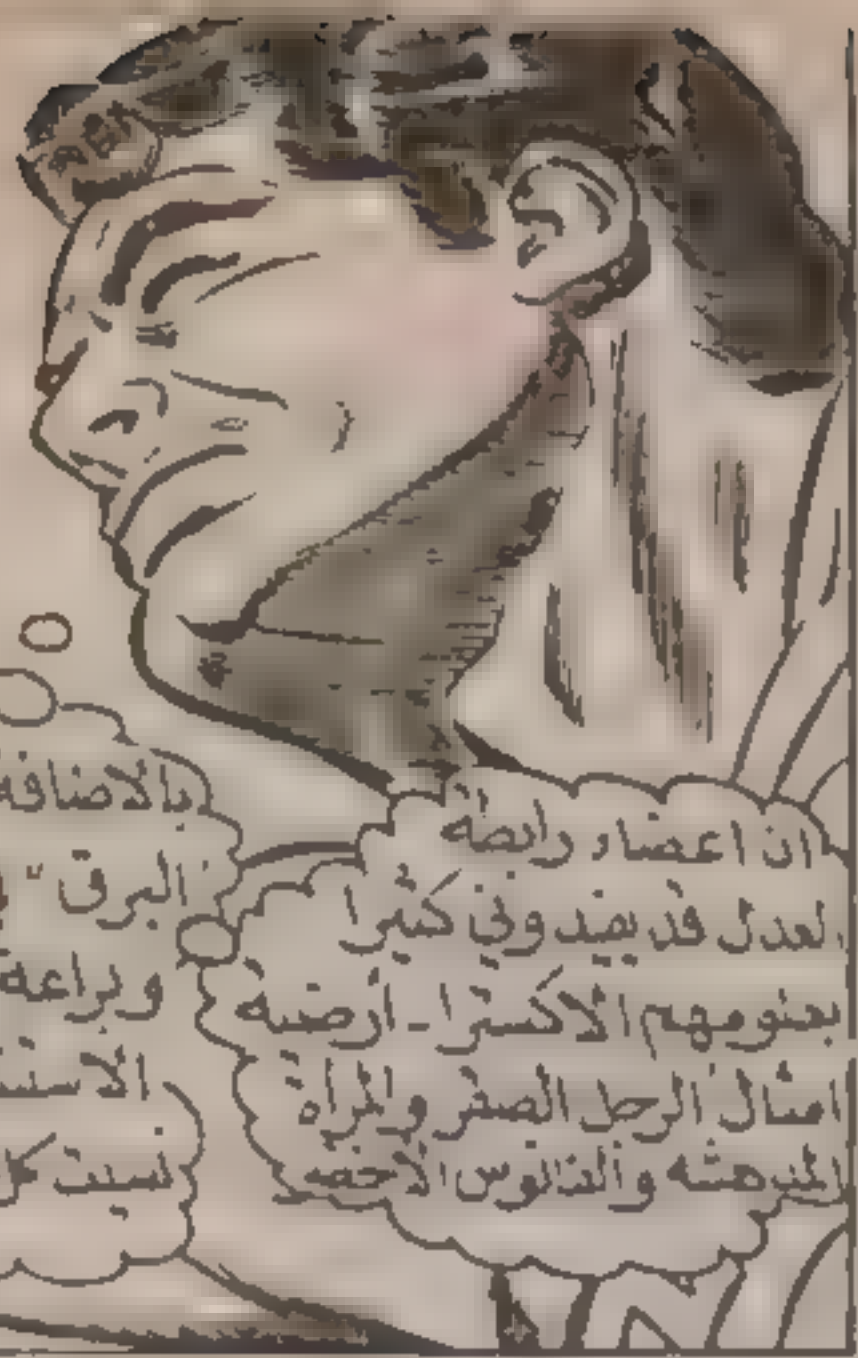 ان اعضاء رابطه
لعدل قد يفيدوني كثيرا
بعلومهم الاكسترا - ارضيه
امثال الرجل الصقر والمراه
المدهشه والفانوس الاخضر
بالاضافه
البرق "
وبراعه
نسيت كل